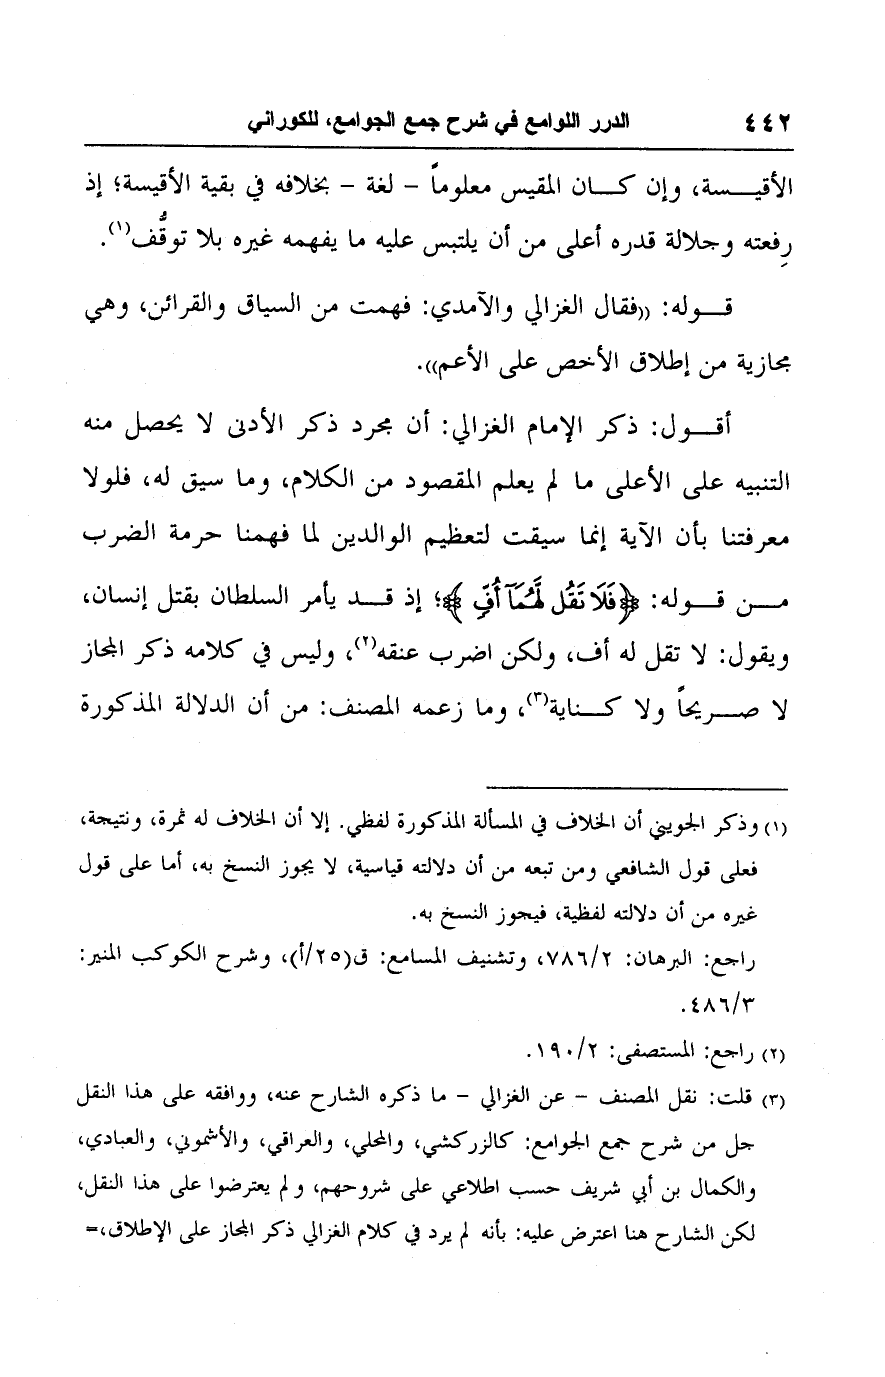 ٤٤٢ الدرر اللوامع في شرح جمع الجوامع، للكوراني
الأقيسة، وإن كان المقيس معلوماً - لغة - بخلافه في بقية الأقيسة؛ إذ
رفعته وجلالة قدره أعلى من أن يلتبس عليه ما يفهمه غيره بلا توقُّف(١).
قوله: ((فقال الغزالي والآمدي: فهمت من السياق والقرائن، وهي
مجازية من إطلاق الأخص على الأعم)).
أقول: ذكر الإمام الغزالي: أن مجرد ذكر الأدنى لا يحصل منه
التنبيه على الأعلى ما لم يعلم المقصود من الكلام، وما سيق له، فلولا
معرفتنا بأن الآية إنما سيقت لتعظيم الوالدين لما فهمنا حرمة الضرب
من قوله: ﴿فَلَا تَقُل لَّهُمَآ أُفٍّ﴾؛ إذ قد يأمر السلطان بقتل إنسان،
ويقول: لا تقل له أف، ولكن اضرب عنقه(٢)، وليس في كلامه ذكر المجاز
لا صريحاً ولا كناية(٣)، وما زعمه المصنف: من أن الدلالة المذكورة
(١) وذكر الجويني أن الخلاف في المسألة المذكورة لفظي. إلا أن الخلاف له ثمرة، ونتيجة،
فعلى قول الشافعي ومن تبعه من أن دلالته قياسية، لا يجوز النسخ به، أما على قول
غيره من أن دلالته لفظية، فيجوز النسخ به.
راجع: البرهان: ٧٨٦/٢، وتشنيف المسامع: ق(٢٥/أ)، وشرح الكوكب المنير:
٤٨٦/٣.
(٢) راجع: المستصفى: ١٩٠/٢.
(٣) قلت: نقل المصنف - عن الغزالي - ما ذكره الشارح عنه، ووافقه على هذا النقل
جل من شرح جمع الجوامع: كالزركشي، والمحلي، والعراقي، والأشموني، والعبادي،
والكمال بن أبي شريف حسب اطلاعي على شروحهم، ولم يعترضوا على هذا النقل،
لكن الشارح هنا اعترض عليه: بأنه لم يرد في كلام الغزالي ذكر المجاز على الإطلاق،=